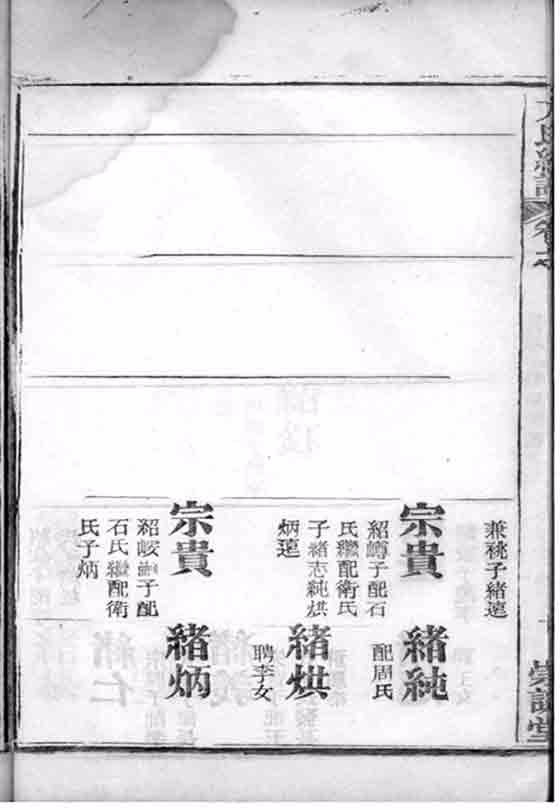 氏續譜
卷七
兼祧子緒蓮
宗貴
紹嶟子配石
氏繼配衛氏
子緒志純烘
炳蓮
緒純
配周氏
緒烘
聘李女
宗貴
紹峻嗣子配
石氏繼配衛
氏子炳
緒炳
譜堂